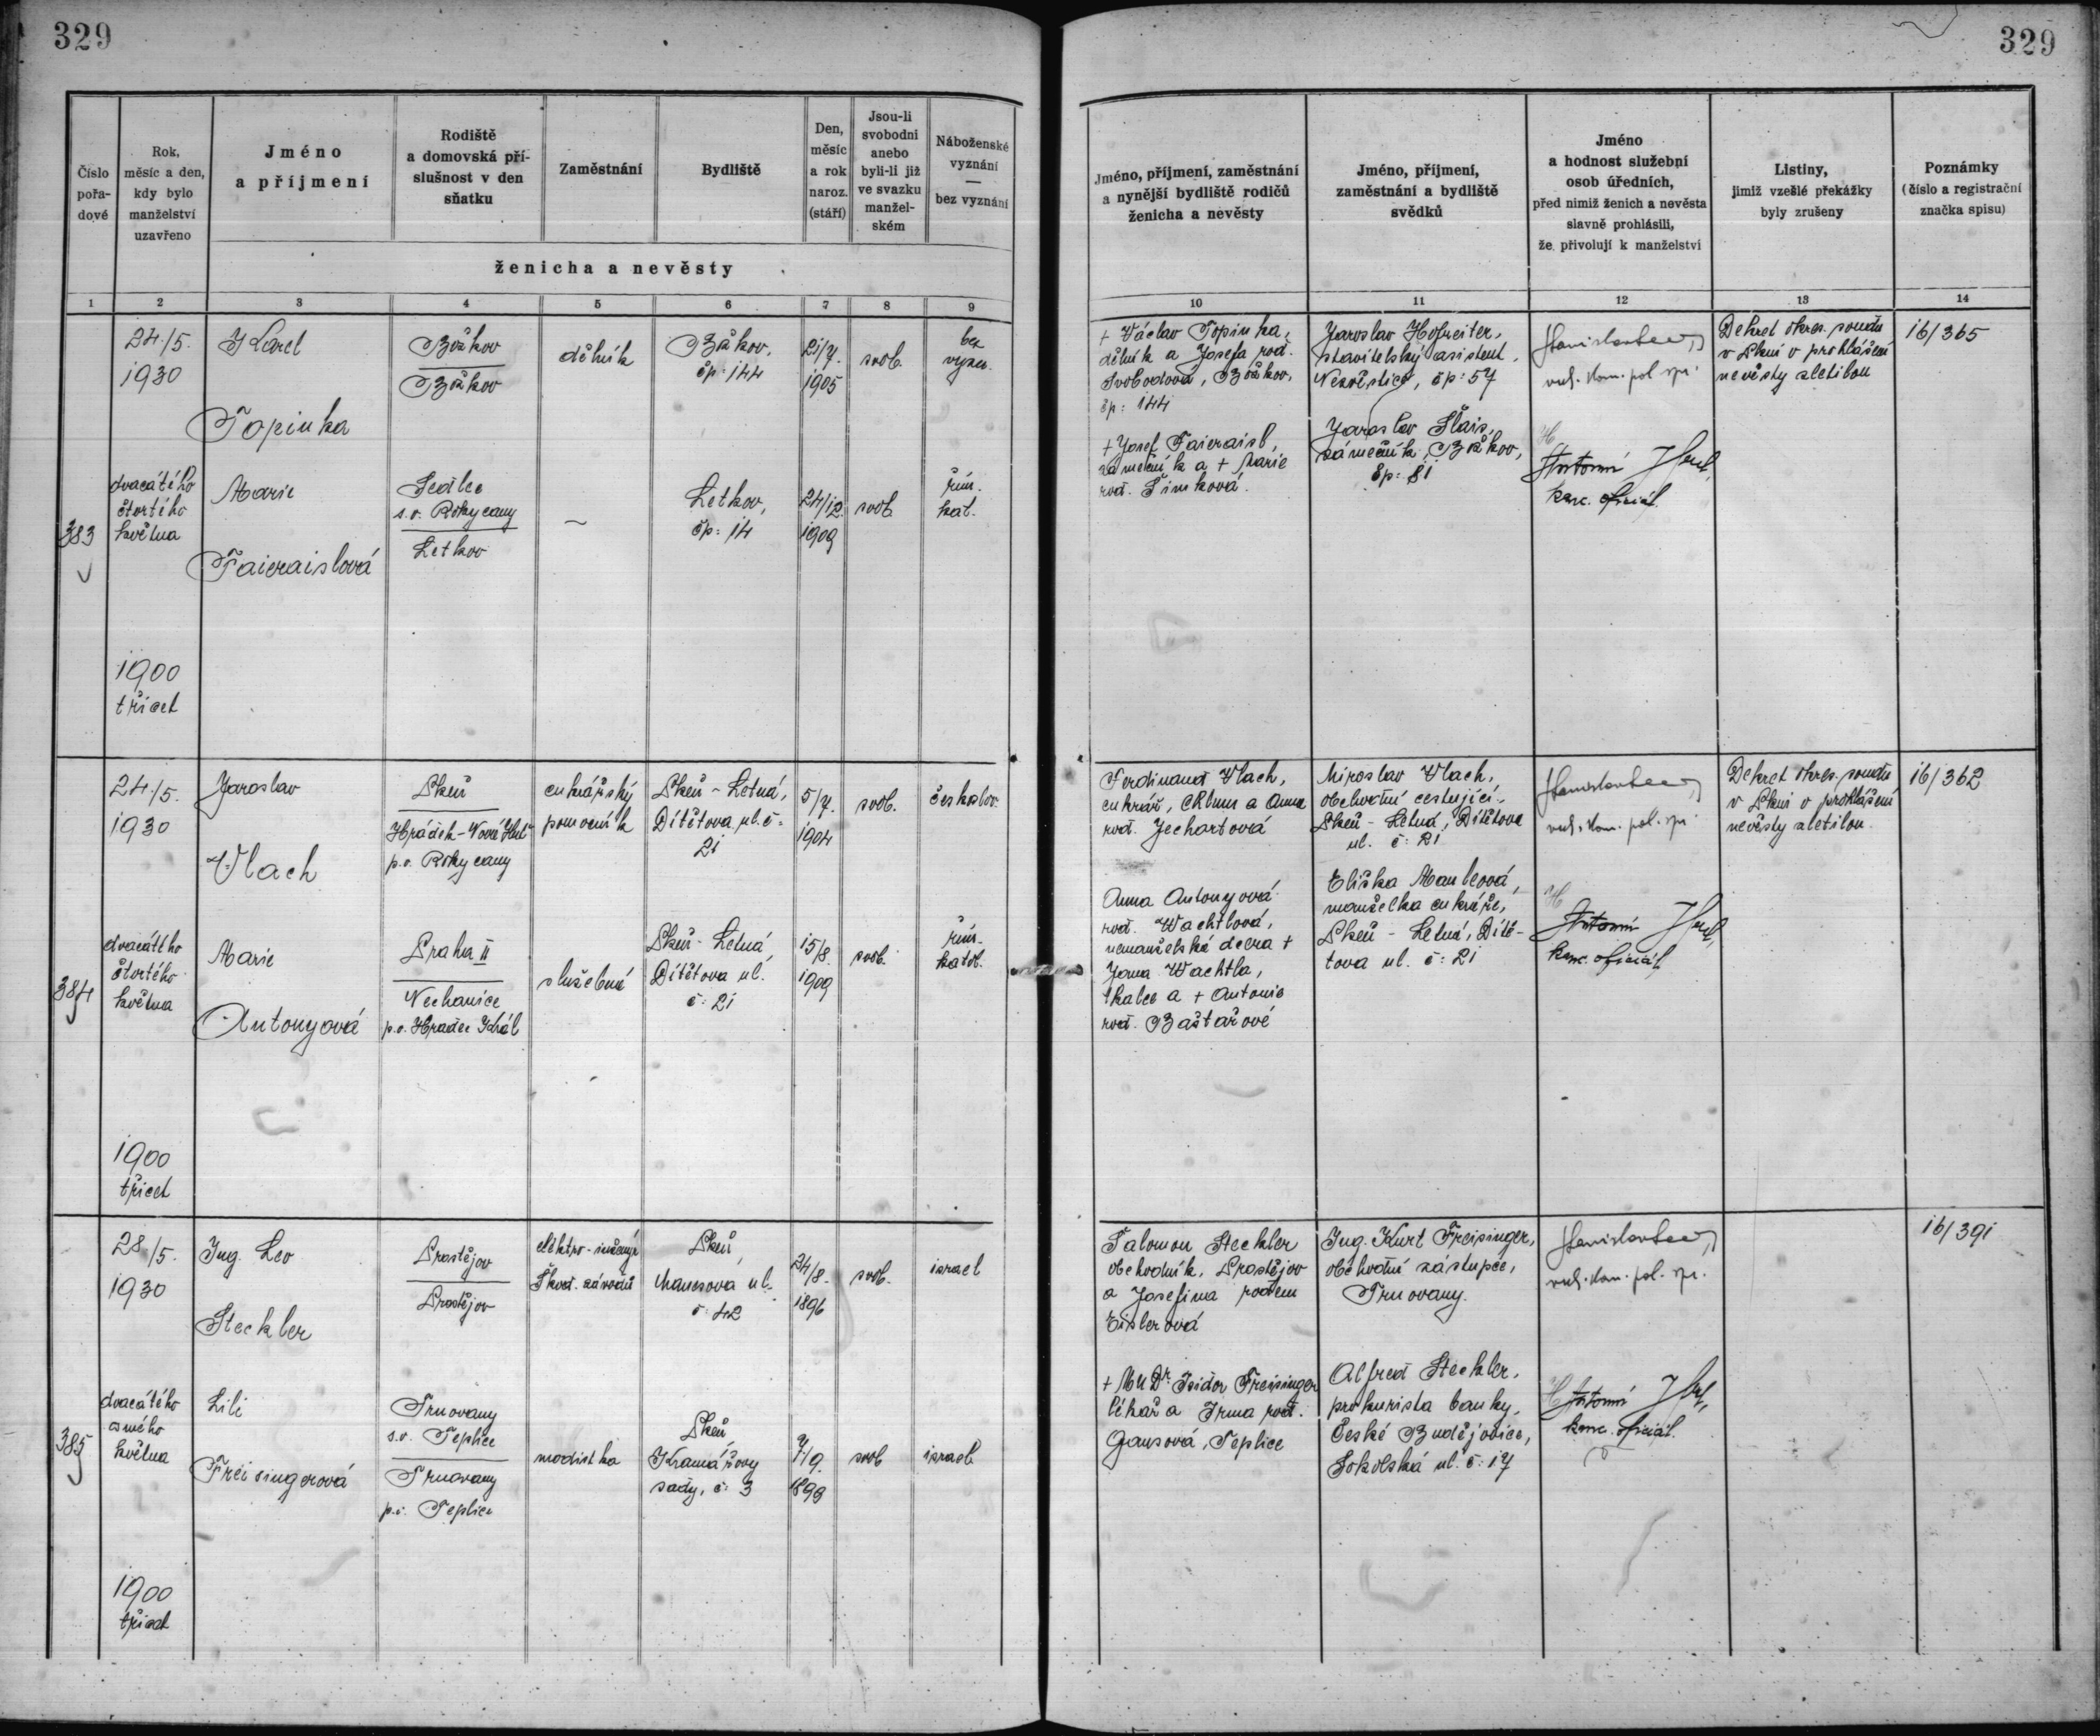 329
329
Číslo
pořa-
dové
Rok,
měsíc a den,
kdy bylo
manželství
uzavřeno
Jméno
a příjmení
Rodiště
a domovská pří-
slušnost v den
sňatku
Zaměstnání
Bydliště
Den,
měsíc
a rok
naroz.
(stáří)
Jsou-li
svobodni
anebo
byli-li již
ve svazku
manžel-
ském
Náboženské
vyznání
—
bez vyznání
ženicha a nevěsty
Jméno, příjmení, zaměstnání
a nynější bydliště rodičů
ženicha a nevěsty
Jméno, příjmení,
zaměstnání a bydliště
svědků
Jméno
a hodnost služební
osob úředních,
před nimiž ženich a nevěsta
slavně prohlásili,
že přivolují k manželství
Listiny,
jimiž vzešlé překážky
byly zrušeny
Poznámky
(číslo a registrační
značka spisu)
1 2 3 4 5 6 7 8 9 10 11 12 13 14
383
24./5.
1930
dvacátého
čtvrtého
května
1900
třicet
Karel
Topinka
Božkov
Božkov
dělník
Božkov,
čp: 144
21/7.
1905
svob.
bez
vyzn.
Marie
Faieraislová
Sedlec
s.o. Rokycany
Letkov
—
Letkov,
čp: 14
24/12.
1909
svob.
řím.
kat.
+ Václav Topinka,
dělník a Josefa roz.
Svobodová, Božkov,
čp: 144
+ Josef Faieraisl,
zámečník a + Marie
roz. Šimková.
Jaroslav Hofreiter,
stavitelský asistent,
Nezvěstice, čp: 57
Jaroslav Šlais,
zámečník, Božkov,
čp: 81
vrch. kom. pol. spr.
Antonín
kanc. oficiál
Dekret okres. soudu
v Plzni o prohlášení
nevěsty zletilou
16/365
384
24./5.
1930
dvacátého
čtvrtého
května
1900
třicet
Jaroslav
Vlach
Plzeň
Hrádek-Nová Huť
p.o. Rokycany
cukrářský
pomocník
Plzeň - Letná,
Dítětova ul. č:
21
5/7.
1904
svob.
českoslov.
Marie
Antonyová
Praha II
Nechanice
p.o. Hradec Král
služebná
Plzeň - Letná
Dítětova ul.
č: 21
15/8.
1909
svob.
řím.
katol.
Ferdinand Vlach,
cukrář, Chlum a Anna
roz. Jechartová
Anna Antonyová
roz. Wachtlová,
nemanželská dcera +
Jana Wachtla,
tkalce a + Antonie
roz. Baštařové
Miroslav Vlach,
obchodní cestující,
Plzeň - Letná, Dítětova
ul. č: 21
Eliška Mauleová,
manželka cukráře,
Plzeň - Letná, Dítě-
tova ul. č: 21
vrch. kom. pol. spr.
Antonín
kanc. oficiál
Dekret okres. soudu
v Plzni o prohlášení
nevěsty zletilou.
16/362
385
28./5.
1930
dvacátého
osmého
května
1900
třicet
Ing. Leo
Steckler
Prostějov
Prostějov
elektro-inženýr
Škod. závodů
Plzeň
Mánesova ul.
č: 42
24/8.
1896
svob.
israel
Lili
Freisingerová
Trnovany
s.o. Teplice
Trnovany
p.o. Teplice
modistka
Plzeň,
Kramářovy
sady, č: 3
7/9.
1899
svob
israel
Salomon Steckler
obchodník, Prostějov
a Josefina rozen
Eislerová
+ MUDr Isidor Freisinger
lékař a Irma roz.
Gansová, Teplice
Ing. Kurt Freisinger,
obchodní zástupce,
Trnovany.
Alfred Steckler,
prokurista banky,
České Budějovice,
Sokolská ul. č: 17
vrch. kom. pol. spr.
Antonín
kanc. oficiál
16/391